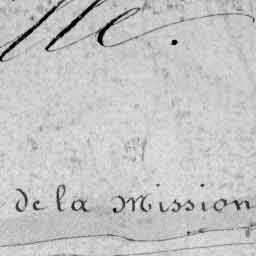 lle.
de la Mission